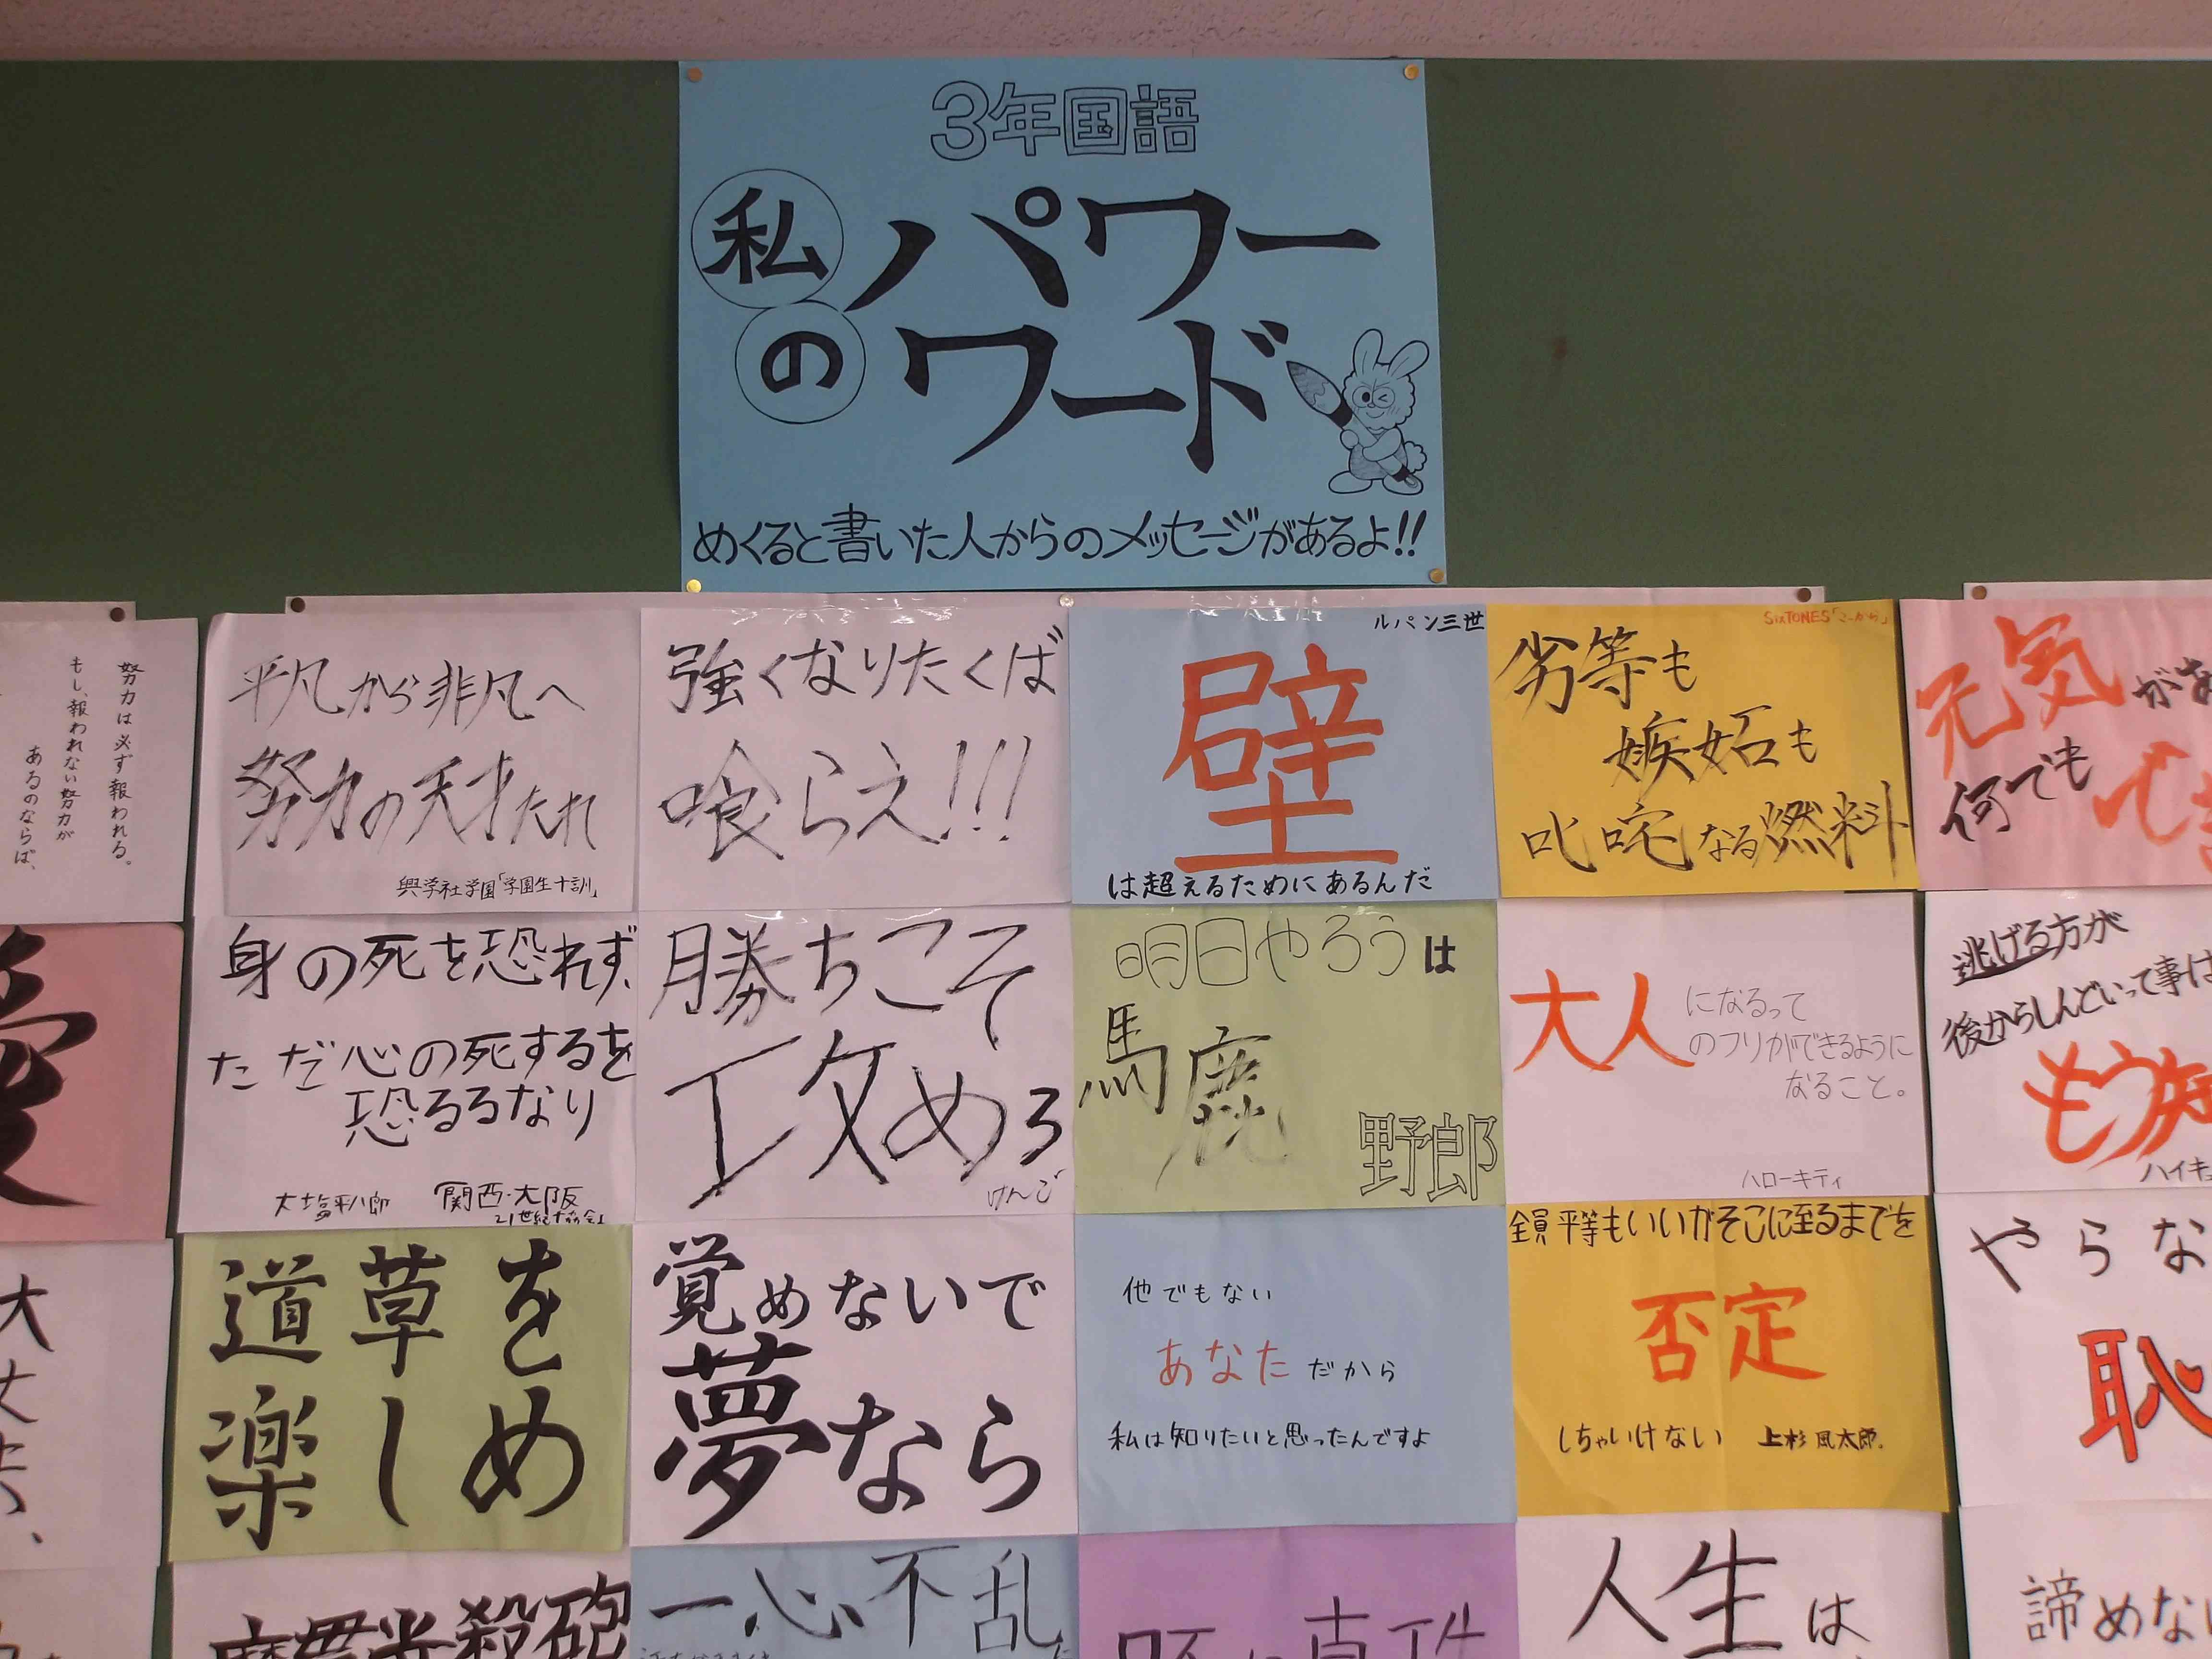 3年国語
私の
パワー
ワード
めくると書いた人からのメッセージがあるよ!!
努力は必ず報われる。
もし、報われない努力が
あるのならば、
平凡から非凡へ
努力の天才たれ
興学社学園「学園生十訓」
強くなりたくば
喰らえ!!!
ルパン三世
壁
は超えるためにあるんだ
SixTONES「こっから」
劣等も
嫉妬も
叱咤なる燃料
元気があ
何でも
でき
愛
身の死を恐れず、
ただ心の死するを
恐るるなり
大塩平八郎
関西・大阪
21世紀協会
勝ちこそ
攻めろ
けんご
明日やろうは
馬鹿
野郎
大人になるって
のフリができるように
なること。
ハローキティ
逃げる方が
後からしんどいって事は
もう知
ハイキュ
大丈夫、
道草を
楽しめ
覚めないで
夢なら
他でもない
あなただから
私は知りたいと思ったんですよ
全員平等もいいがそこに至るまでを
否定
しちゃいけない 上杉風太郎.
やらな
恥
魔貫光殺砲
一心不乱
人生は
諦めない